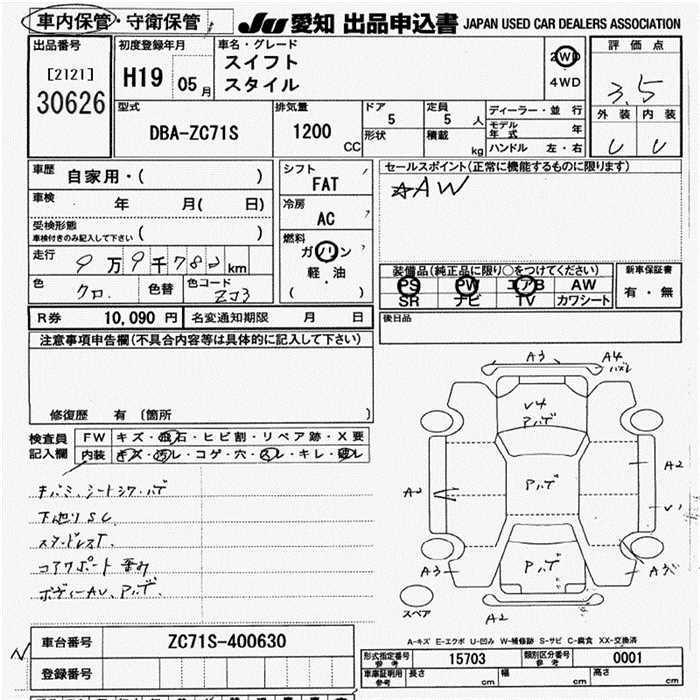 車内保管・守衛保管 JU 愛知 出品申込書 JAPAN USED CAR DEALERS ASSOCIATION
出品番号 [2121] 30626
初度登録年月 H19 05月
車名・グレード スイフト スタイル
2WD 4WD
評価点 3.5
外装 内装
U U
型式 DBA-ZC71S
排気量 1200 CC
ドア 5 定員 5人
形状 積載 kg
ディーラー・並行
モデル年式 年
ハンドル 左・右
車歴 自家用・( )
車検 年 月( 日)
受検形態 車検付きのみ記入して下さい ( )
走行 9万9千782km
色 クロ 色替 色コード ZJ3
シフト FAT
冷房 AC
燃料 ガソリン 軽・油 ( )
セールスポイント(正常に機能するものに限ります)
☆AW
装備品(純正品に限り○をつけてください)
PS PW エアB AW
SR ナビ TV カワシート
新車保証書 有・無
後日品
R券 10,090 円 名変通知期限 月 日
注意事項申告欄(不具合内容等は具体的に記入して下さい)
修復歴 有 〔箇所 〕
検査員記入欄
FW キズ・飛石・ヒビ割・リペア跡・X要
内装 キズ・汚レ・コゲ・穴・スレ・キレ・破レ
下廻りSC
ボディーAU、アバデ
A3 A4
V4
アバデ
A2 アバデ A2
V1
A3 アバデ
スペア A2
A-キズ E-エクボ U-凹み W-補修跡 S-サビ C-腐食 XX-交換済
車台番号 ZC71S-400630
登録番号
型式指定番号 参考 15703 類別区分番号 参考 0001
車庫証明用 参考 長さ cm 幅 cm 高さ cm